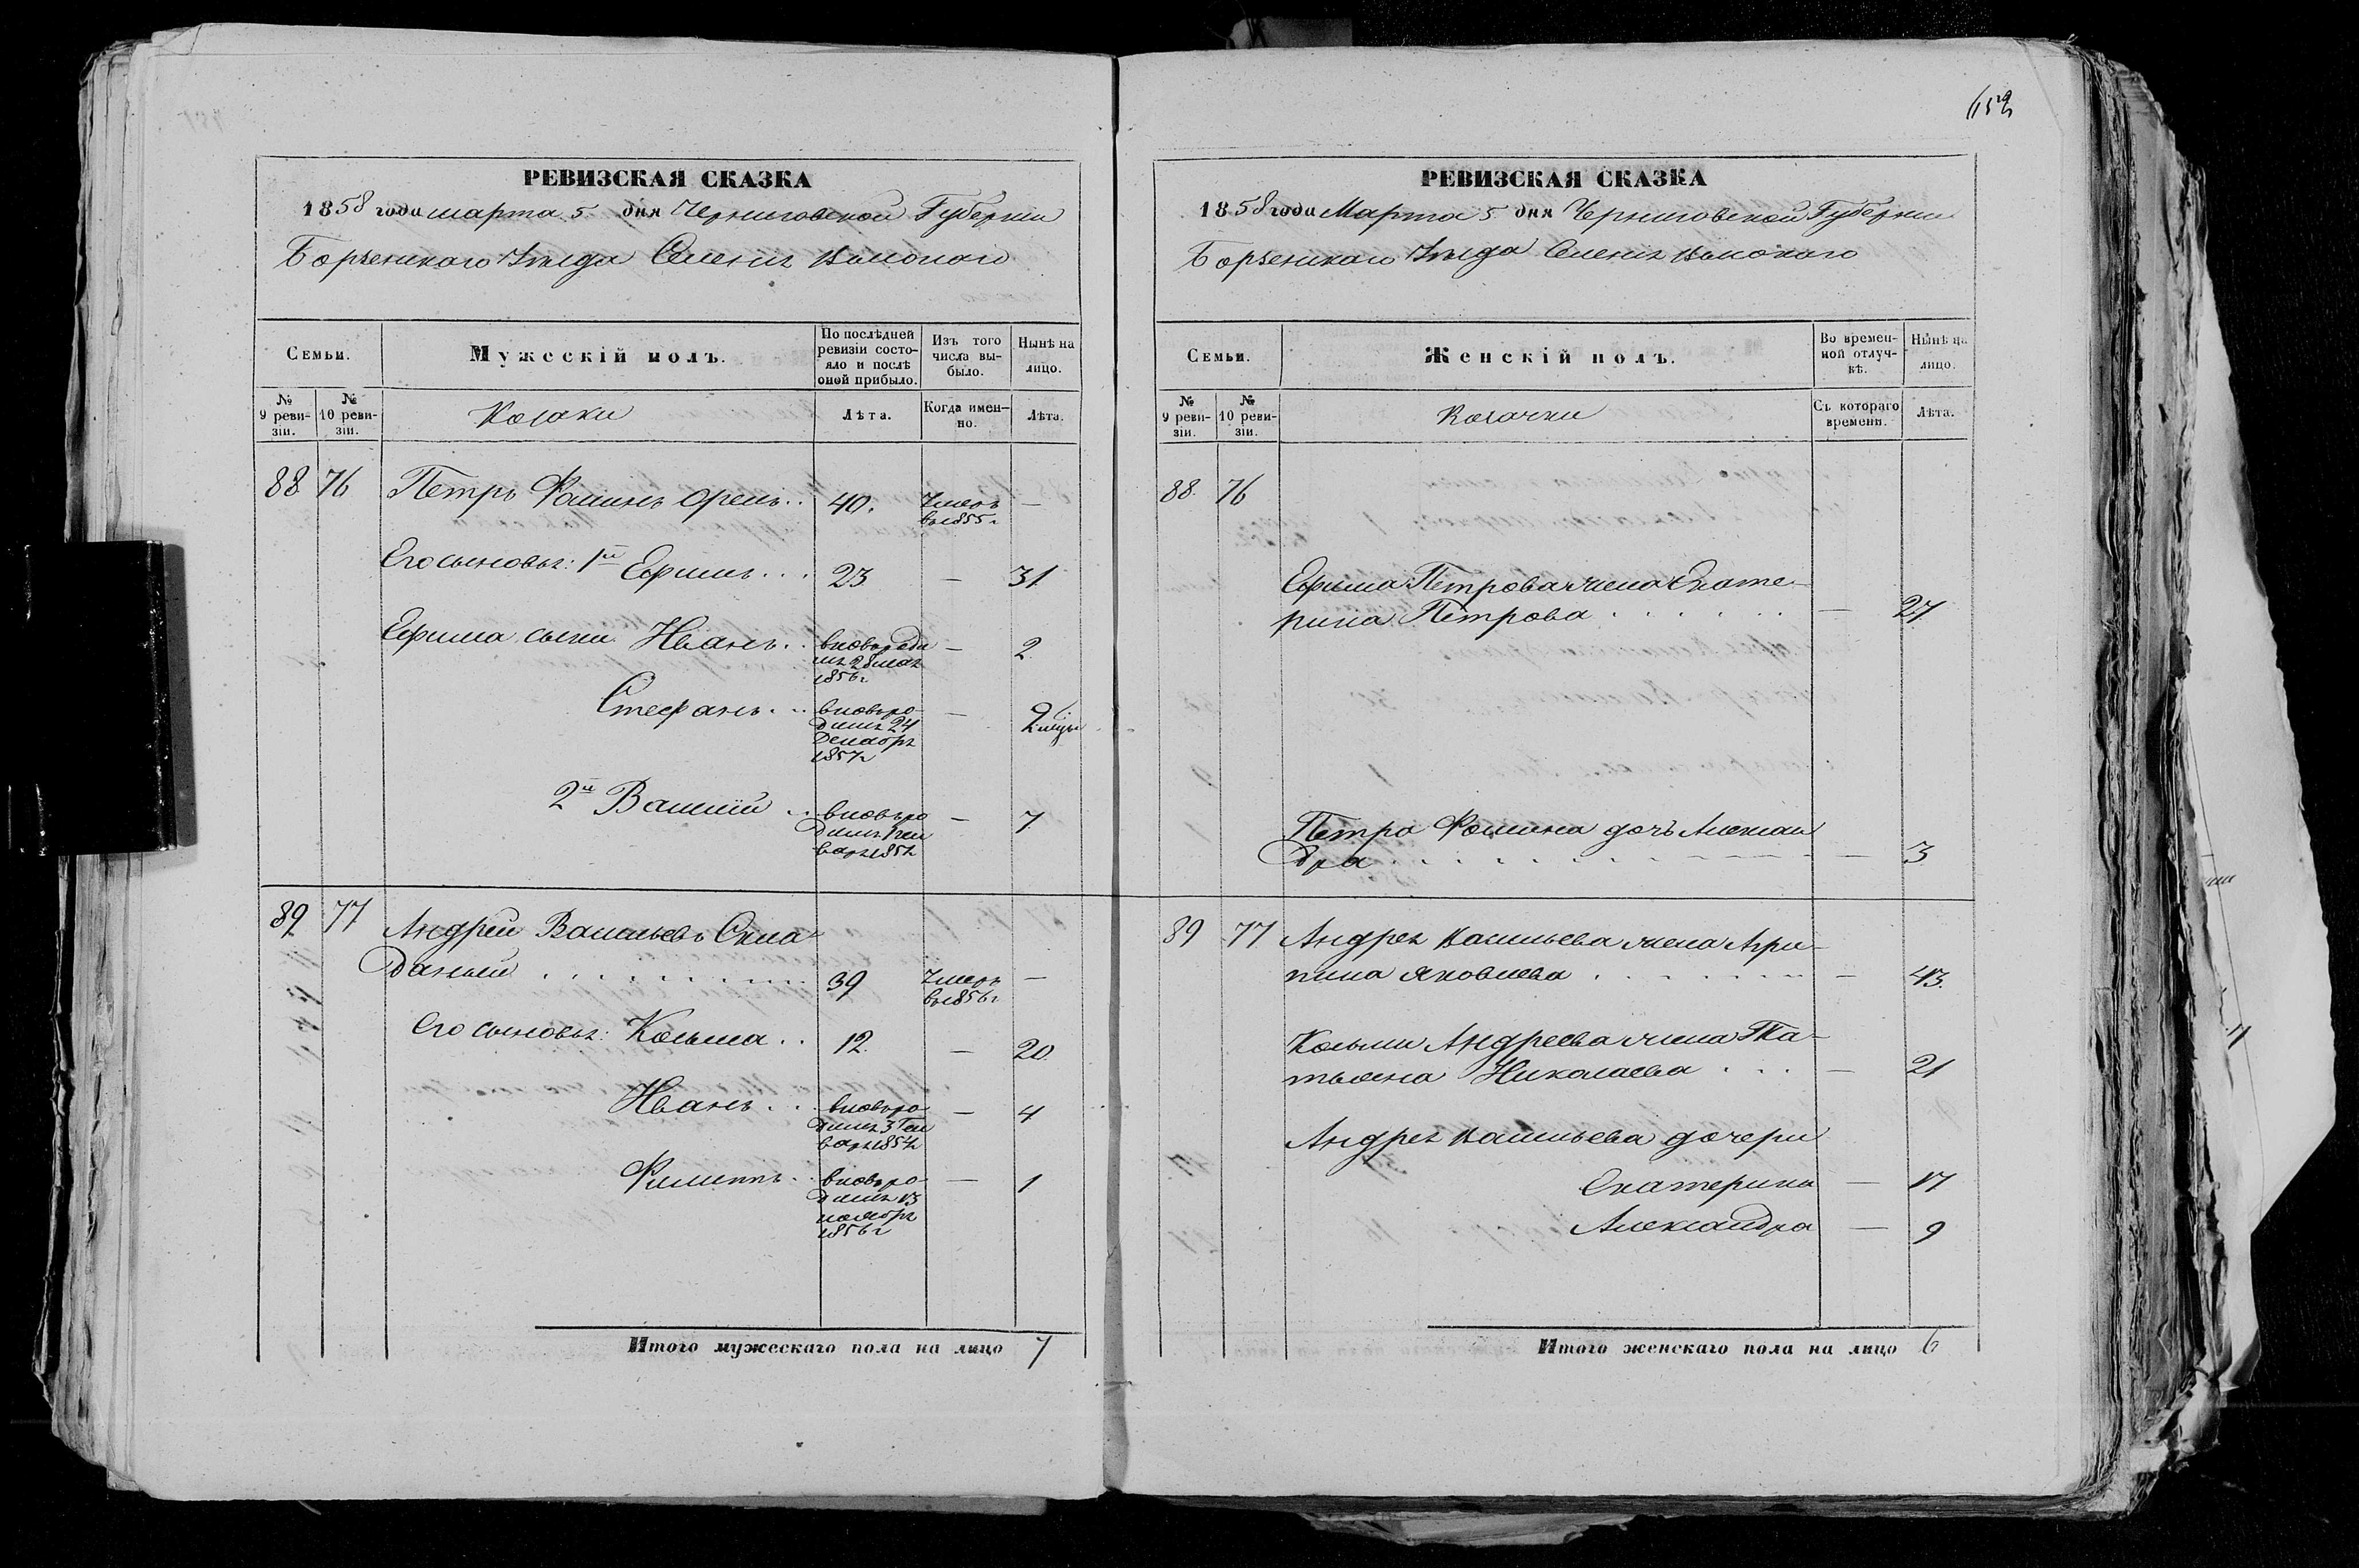 652
РЕВИЗСКАЯ СКАЗКА
1858 года марта 5 дня Черниговской Губернии
Борзенскаго Уезда Селенія
Семьи.
Мужескій полъ.
По послѣдней ревизіи состояло и послѣ оной прибыло.
Изъ того числа выбыло.
Нынѣ на лицо.
№ 9 ревизіи.
№ 10 ревизіи.
Козаки
Лѣта.
Когда именно.
Лѣта.
88 76 Петръ Фоминъ Орелъ.. 40. Умеръ въ 1855 г —
Его сыновья: 1й Ефимъ... 23 — 31
Ефима сыни Иванъ.. вновь родился 28 мая 1856 г. — 2
Стефанъ... вновь родился 24 Декабря 1857 — 2 мѣсяц
2й Василій .. вновь родился Генваря — 7
89 77 Андрей Васильевъ
39 Умеръ въ 1856 г —
Его сыновья: Козьма.. 12 — 20
Иванъ... вновь родился 3 Генваря 1854 — 4
Филиппъ.. вновь родился 13 ноября 1856 г — 1
Итого мужескаго пола на лицо 7
РЕВИЗСКАЯ СКАЗКА
1858 года Марта 5 дня Черниговской Губернии
Борзенскаго Уезда Селенія
Семьи.
Женскій полъ.
Во временной отлучкѣ.
Нынѣ на лицо.
№ 9 ревизіи.
№ 10 ревизіи.
Козачки
Съ котораго времени.
Лѣта.
88 76
Ефима Петрова жена Екате-
рина Петрова — 27
Петра Фомина дочь Алексан
дра — 3
89 77 Андрея Васильева жена Агри-
пина Яковлева — 43
Козьми Андреева жена Та-
тьяна Николаева — 21
Андрея Васильева дочери
Екатерина — 17
Александра — 9
Итого женскаго пола на лицо 6